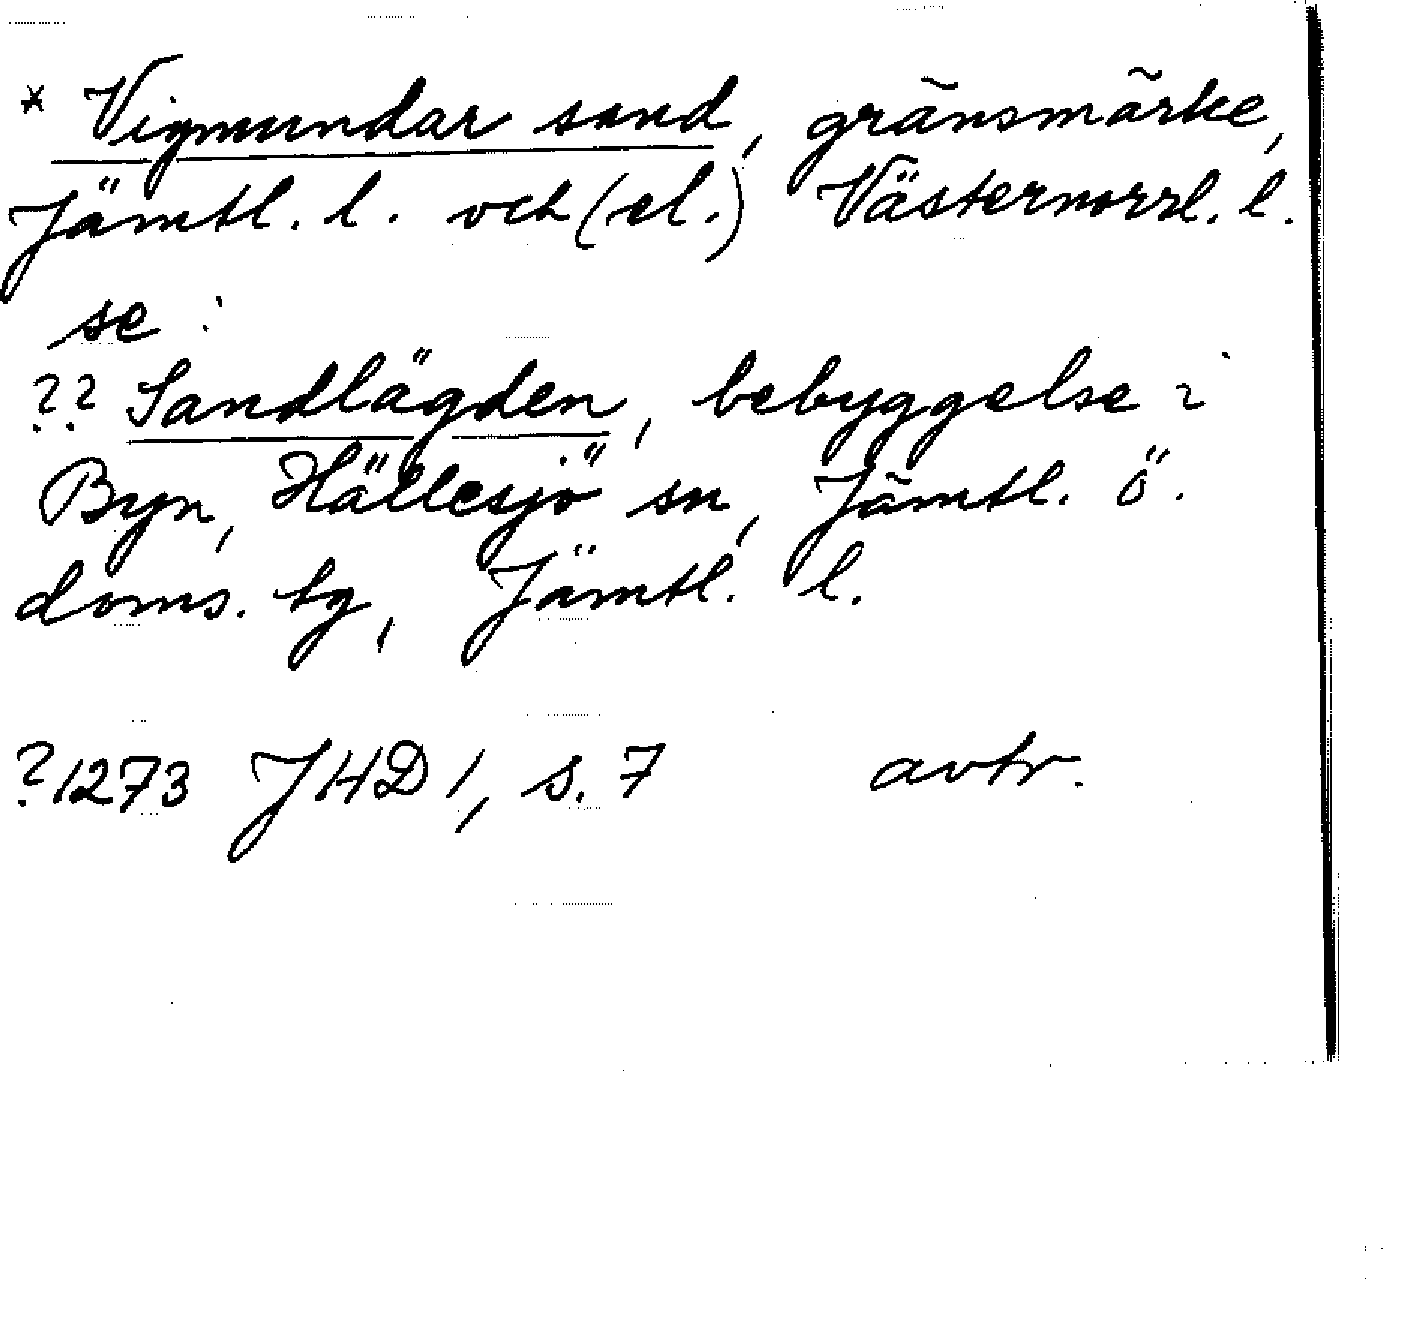 * Vigmundar sand, gränsmärke,
Jämtl. l. och (el.) Västernorrl. l.
se:
?? Sandlägden, bebyggelse i
Byn, Hällesjö sn, Jämtl. ö.
doms. tg, Jämtl. l.
?1273 JHD 1, s. 7 avtr.